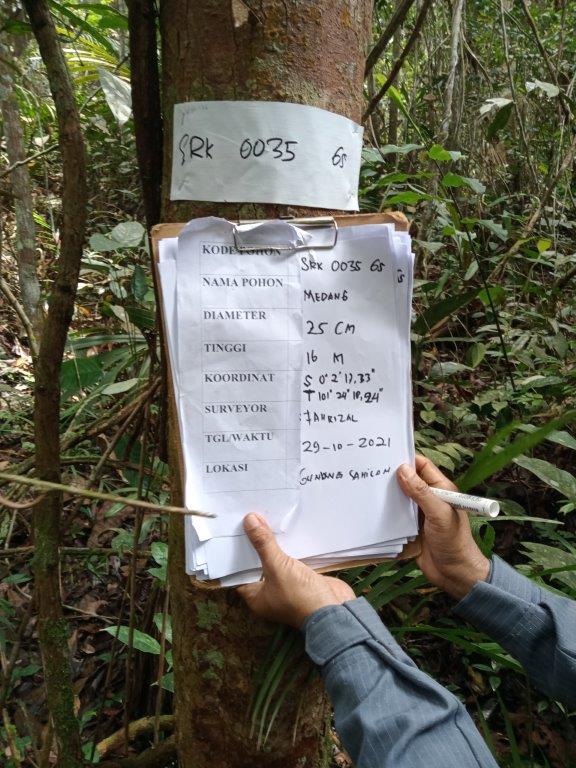 SRK 0035 GS
KODE POHON SRK 0035 GS
NAMA POHON MEDANG
DIAMETER 25 CM
TINGGI 16 M
KOORDINAT S 0° 2' 17,33"
T 101° 24' 18,24"
SURVEYOR FAHRIZAL
TGL/WAKTU 29-10-2021
LOKASI GUNUNG SAHILAN